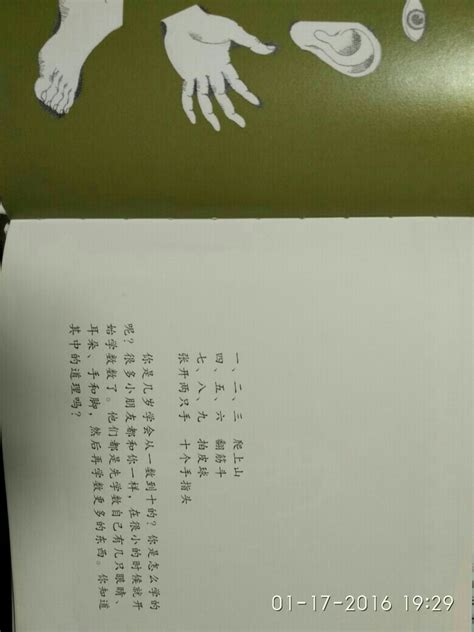 一、二、三　爬上山
四、五、六　翻筋斗
七、八、九　拍皮球
张开两只手　十个手指头
你是几岁学会从一数到十的？你是怎么学的
呢？很多小朋友都和你一样，在很小的时候就开
始学数数了。他们都是先学数自己有几只眼睛、
耳朵、手和脚，然后再学数更多的东西。你知道
其中的道理吗？
01-17-2016 19:29